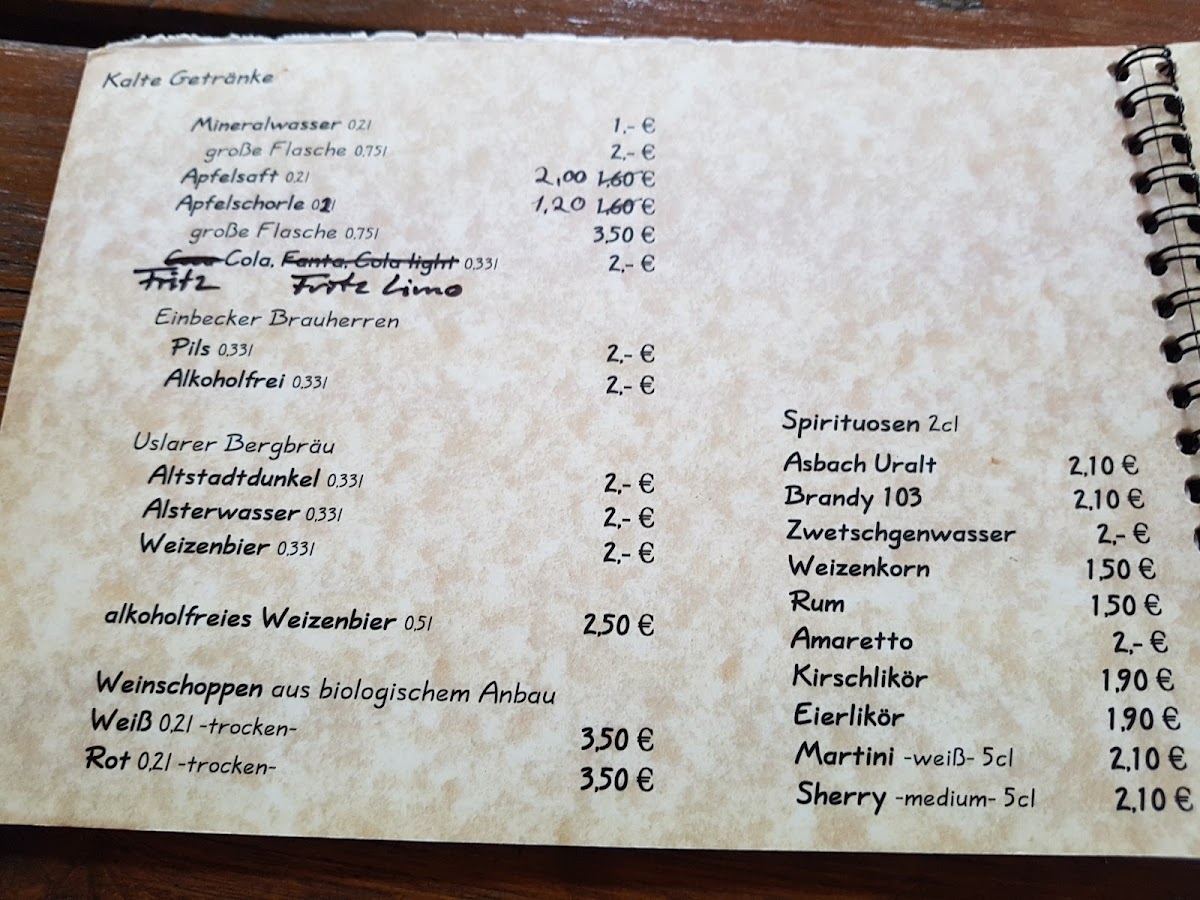 Kalte Getränke
Mineralwasser 0,2l 1,- €
große Flasche 0,75l 2,- €
Apfelsaft 0,2l 2,00 1,60 €
Apfelschorle 0,2l 1,20 1,60 €
große Flasche 0,75l 3,50 €
Coca Cola, Fanta, Cola light 0,33l 2,- €
Fritz Fritz Limo
Einbecker Brauherren
Pils 0,33l 2,- €
Alkoholfrei 0,33l 2,- €
Uslarer Bergbräu
Altstadtdunkel 0,33l 2,- €
Alsterwasser 0,33l 2,- €
Weizenbier 0,33l 2,- €
alkoholfreies Weizenbier 0,5l 2,50 €
Weinschoppen aus biologischem Anbau
Weiß 0,2l -trocken- 3,50 €
Rot 0,2l -trocken- 3,50 €
Spirituosen 2cl
Asbach Uralt 2,10 €
Brandy 103 2,10 €
Zwetschgenwasser 2,- €
Weizenkorn 1,50 €
Rum 1,50 €
Amaretto 2,- €
Kirschlikör 1,90 €
Eierlikör 1,90 €
Martini -weiß- 5cl 2,10 €
Sherry -medium- 5cl 2,10 €